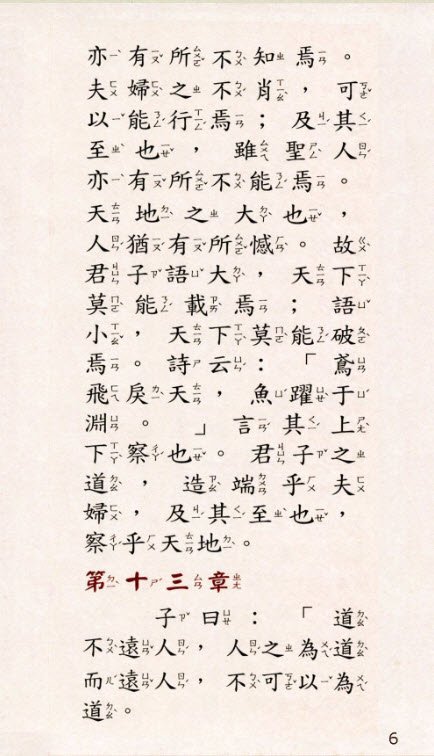 亦有所不知焉。
夫婦之不肖，可
以能行焉；及其
至也，雖聖人
亦有所不能焉。
天地之大也，
人猶有所憾。故
君子語大，天下
莫能載焉；語
小，天下莫能破
焉。詩云：「鳶
飛戾天，魚躍于
淵。」言其上
下察也。君子之
道，造端乎夫
婦，及其至也，
察乎天地。
第十三章
子曰：「道
不遠人，人之為道
而遠人，不可以為
道。
6